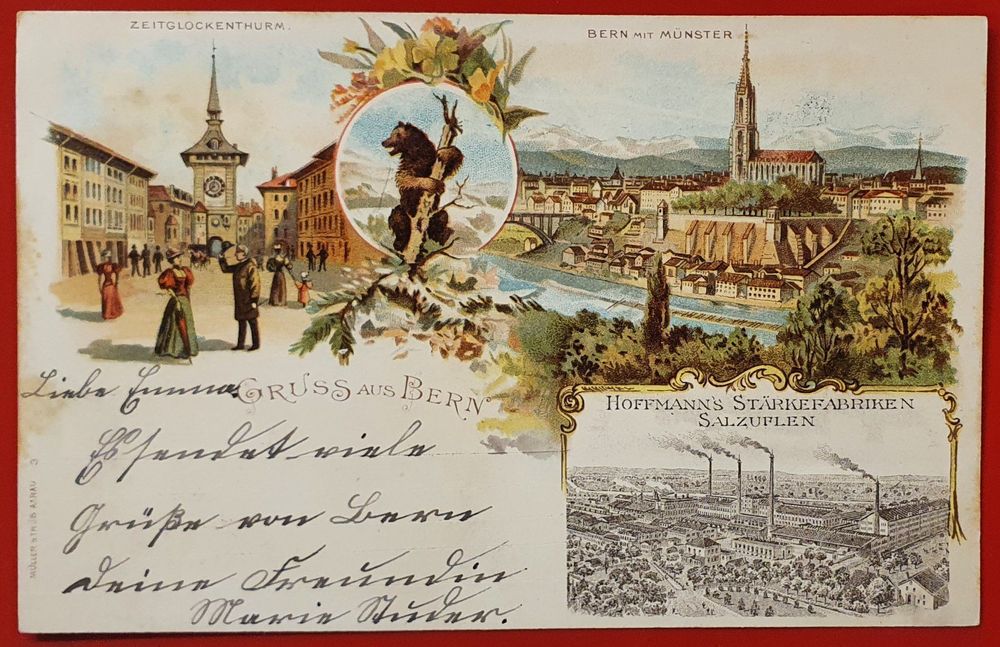 ZEITGLOCKENTHURM.
BERN MIT MÜNSTER
Liebe Emma.
GRUSS AUS BERN
HOFFMANN'S STÄRKEFABRIKEN
SALZUFLEN
Es sendet viele
Grüße von Bern
deine Freundin
Marie Studer.
MÜLLER & TRÜB AARAU 3